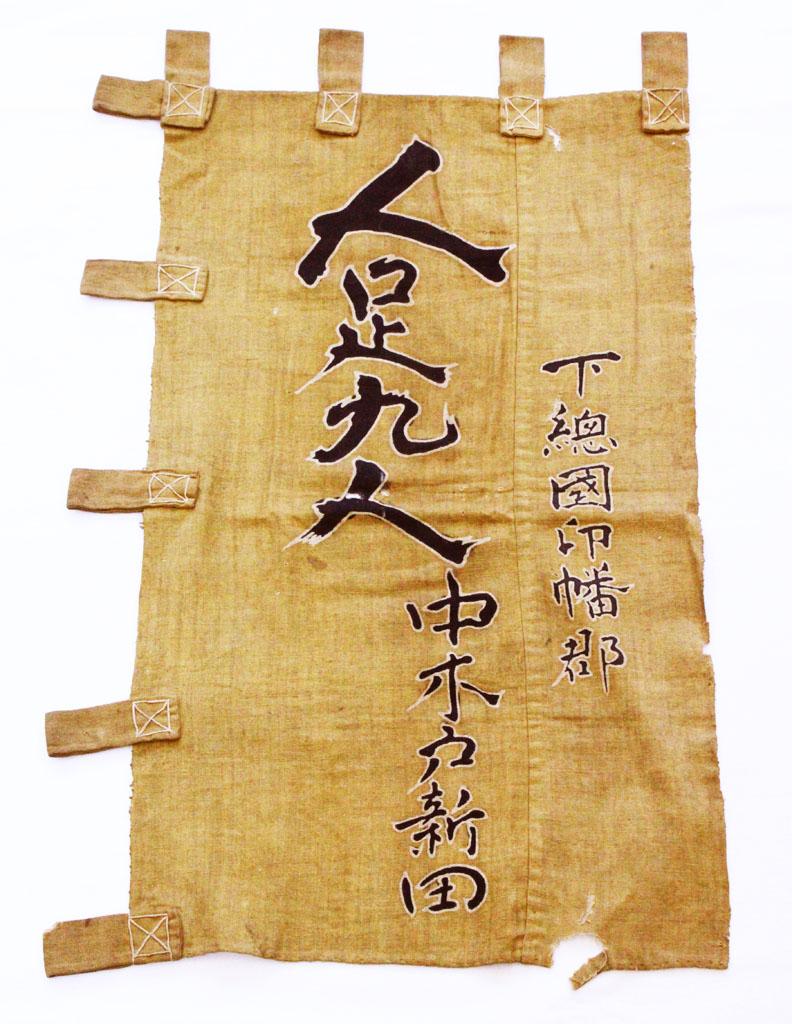 下總國印幡郡
人足九人
中木戸新田